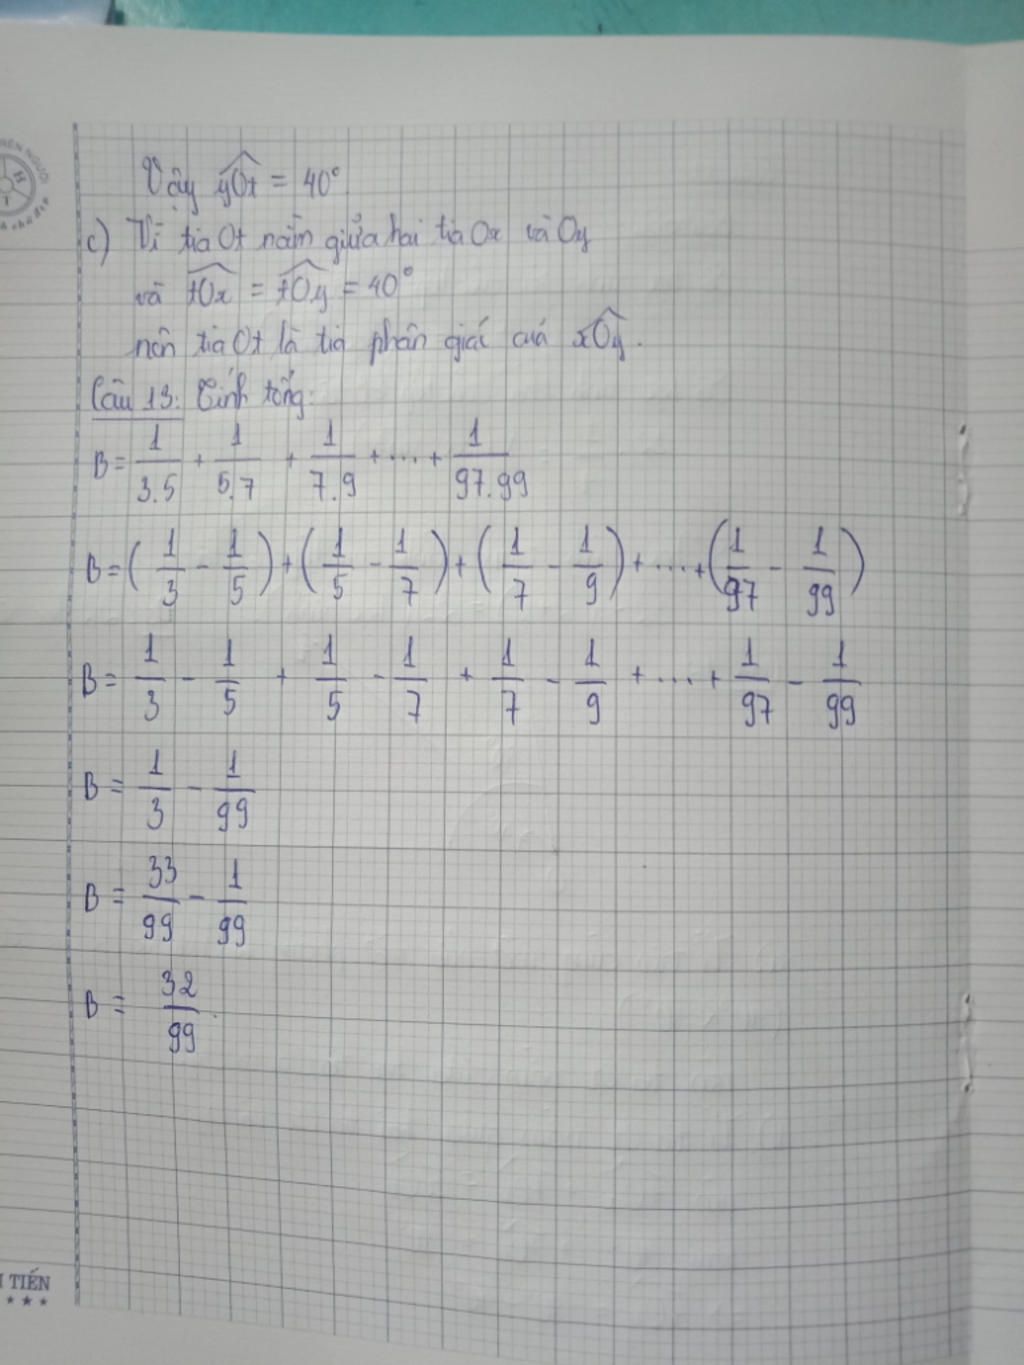 Vậy yOt = 40°.
c) Vì tia Ot nằm giữa hai tia Ox và Oy
và tOx = tOy = 40°
nên tia Ot là tia phân giác của xOy.
Câu 13: Tính tổng:
B = 1/3.5 + 1/5.7 + 1/7.9 + .... + 1/97.99
B = (1/3 - 1/5) + (1/5 - 1/7) + (1/7 - 1/9) + .... + (1/97 - 1/99)
B = 1/3 - 1/5 + 1/5 - 1/7 + 1/7 - 1/9 + .... + 1/97 - 1/99
B = 1/3 - 1/99
B = 33/99 - 1/99
B = 32/99.
TIẾN